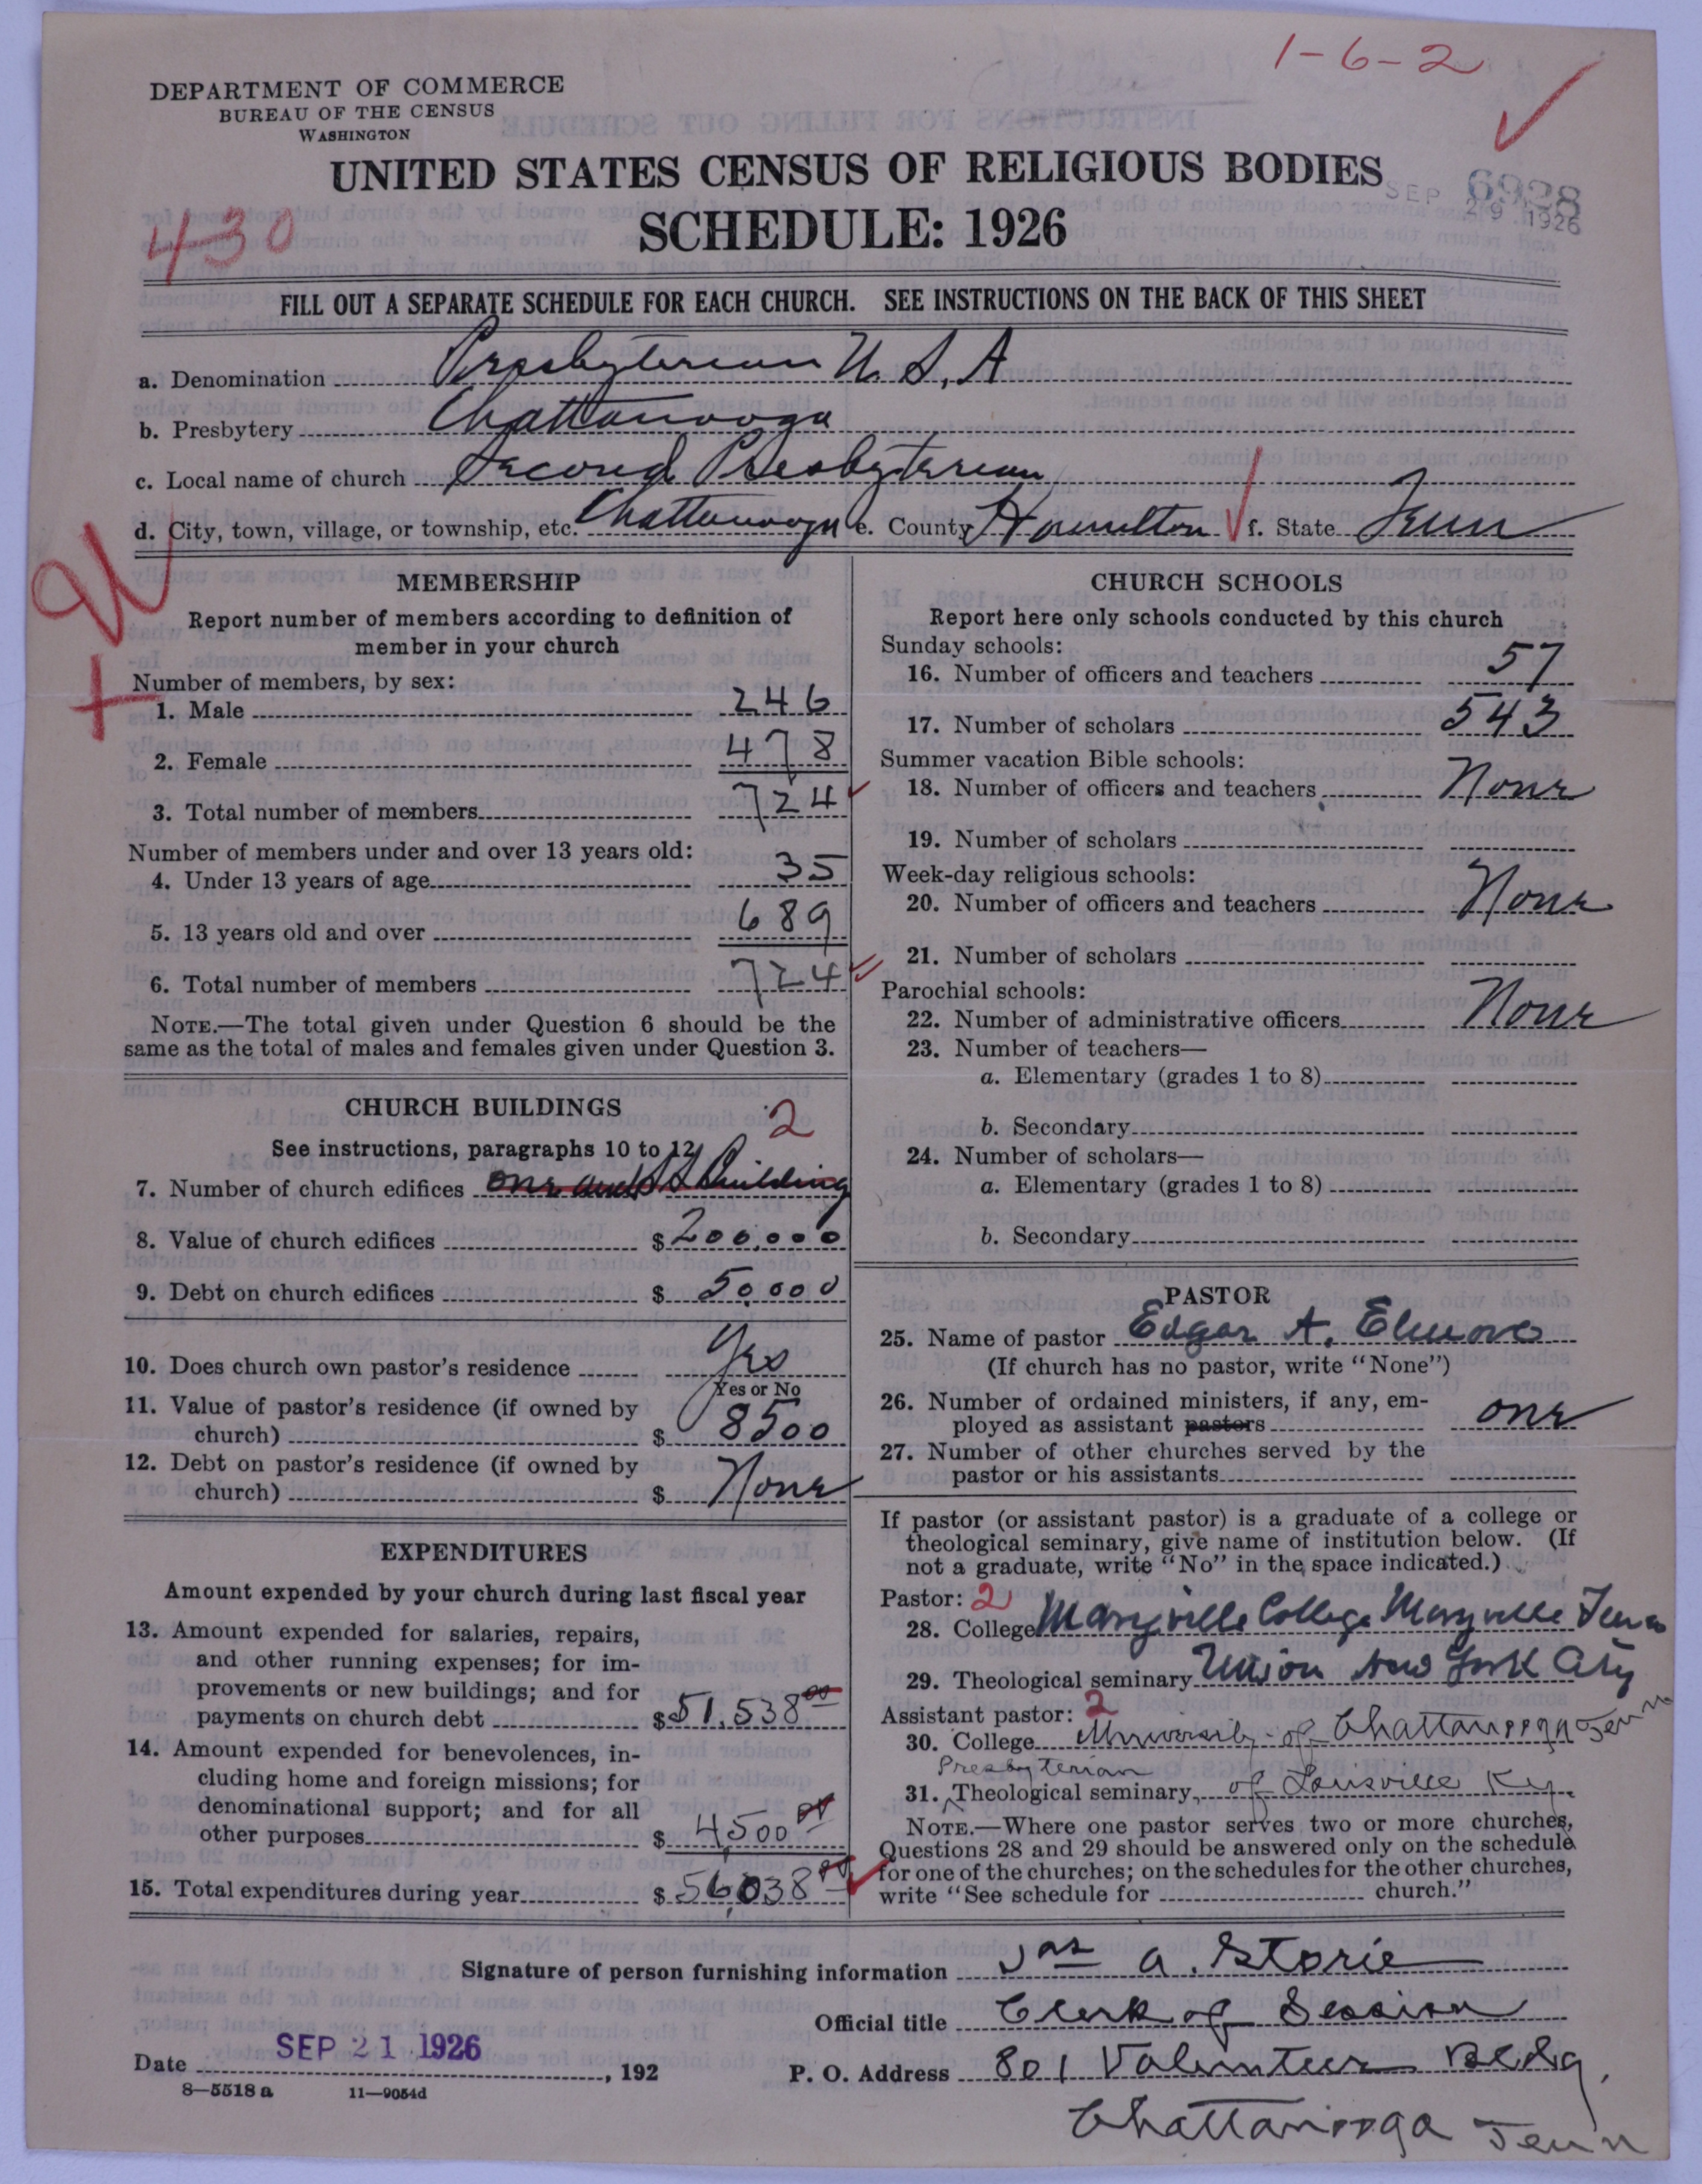 1-6-2
DEPARTMENT OF COMMERCE
BUREAU OF THE CENSUS
WASHINGTON
UNITED STATES CENSUS OF RELIGIOUS BODIES
SCHEDULE: 1926
6928
SEP 29 1926
430
FILL OUT A SEPARATE SCHEDULE FOR EACH CHURCH. SEE INSTRUCTIONS ON THE BACK OF THIS SHEET
a. Denomination Presbyterian U. S. A
b. Presbytery Chattanooga
c. Local name of church Second Presbyterian
d. City, town, village, or township, etc. Chattanooga e. County Hamilton f. State Tenn
MEMBERSHIP
Report number of members according to definition of
member in your church
Number of members, by sex:
1. Male 246
2. Female 478
3. Total number of members 724
Number of members under and over 13 years old:
4. Under 13 years of age 35
5. 13 years old and over 689
6. Total number of members 724
NOTE.—The total given under Question 6 should be the
same as the total of males and females given under Question 3.
CHURCH BUILDINGS
2
See instructions, paragraphs 10 to 12
7. Number of church edifices one and S S Building
8. Value of church edifices $ 200,000
9. Debt on church edifices $ 50,000
10. Does church own pastor's residence Yes
Yes or No
11. Value of pastor's residence (if owned by
church) $ 8500
12. Debt on pastor's residence (if owned by
church) $ None
EXPENDITURES
Amount expended by your church during last fiscal year
13. Amount expended for salaries, repairs,
and other running expenses; for im-
provements or new buildings; and for
payments on church debt $ 51,538 00
14. Amount expended for benevolences, in-
cluding home and foreign missions; for
denominational support; and for all
other purposes $ 4,500 00
15. Total expenditures during year $ 56,038 00
CHURCH SCHOOLS
Report here only schools conducted by this church
Sunday schools:
16. Number of officers and teachers 57
17. Number of scholars 543
Summer vacation Bible schools:
18. Number of officers and teachers None
19. Number of scholars
Week-day religious schools:
20. Number of officers and teachers None
21. Number of scholars
Parochial schools:
22. Number of administrative officers None
23. Number of teachers—
a. Elementary (grades 1 to 8)
b. Secondary
24. Number of scholars—
a. Elementary (grades 1 to 8)
b. Secondary
PASTOR
25. Name of pastor Edgar A. Elmore
(If church has no pastor, write "None")
26. Number of ordained ministers, if any, em-
ployed as assistant pastors one
27. Number of other churches served by the
pastor or his assistants
If pastor (or assistant pastor) is a graduate of a college or
theological seminary, give name of institution below. (If
not a graduate, write "No" in the space indicated.)
Pastor: 2
28. College Maryville College Maryville Tenn
29. Theological seminary Union New York City
Assistant pastor: 2
30. College University of Chattanooga Tenn
Presbyterian
31. Theological seminary of Louisville Ky.
NOTE.—Where one pastor serves two or more churches,
Questions 28 and 29 should be answered only on the schedule
for one of the churches; on the schedules for the other churches,
write "See schedule for church."
Signature of person furnishing information Jas A. Storie
Official title Clerk of Session
Date SEP 21 1926, 192
P. O. Address 801 Volunteer Bldg,
Chattanooga Tenn
8—5518 a 11—9054d